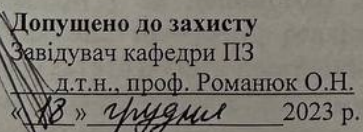 Допущено до захисту
Завідувач кафедри ПЗ
д.т.н., проф. Романюк О.Н.
« 13 » грудня 2023 р.